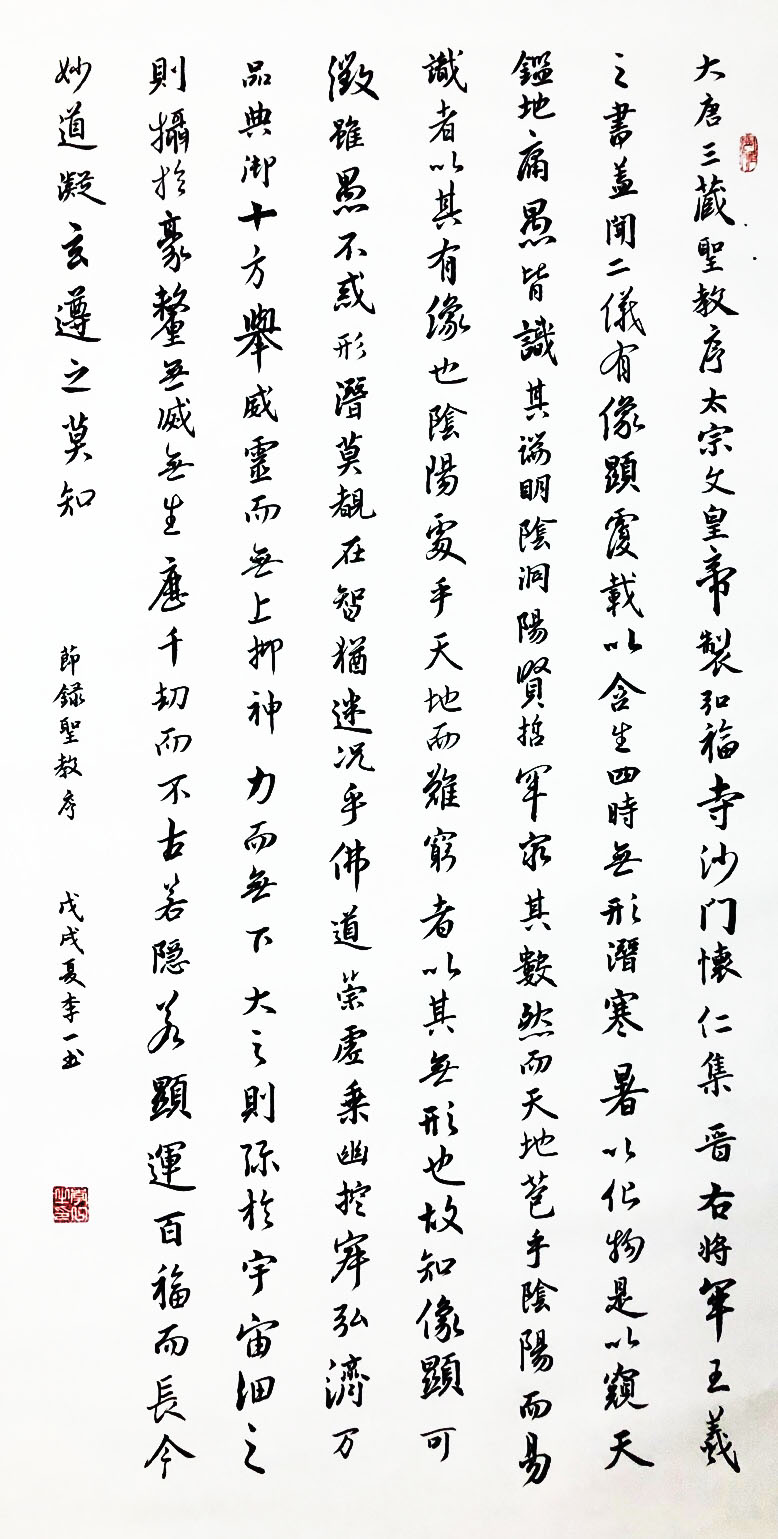 大唐三藏聖教序太宗文皇帝製弘福寺沙門懷仁集晋右將軍王羲
之書蓋聞二儀有像顯覆載以含生四時無形潛寒暑以化物是以窺天
鑑地庸愚皆識其端明陰洞陽賢哲罕窮其數然而天地苞乎陰陽而易
識者以其有像也陰陽處乎天地而難窮者以其無形也故知像顯可
徵雖愚不惑形潛莫覩在智猶迷况乎佛道崇虛乘幽控寂弘濟万
品典御十方舉威靈而無上抑神力而無下大之則弥於宇宙細之
則攝於豪釐無滅無生歷千劫而不古若隱若顯運百福而長今
妙道凝玄遵之莫知 節錄聖教序 戊戌夏李一